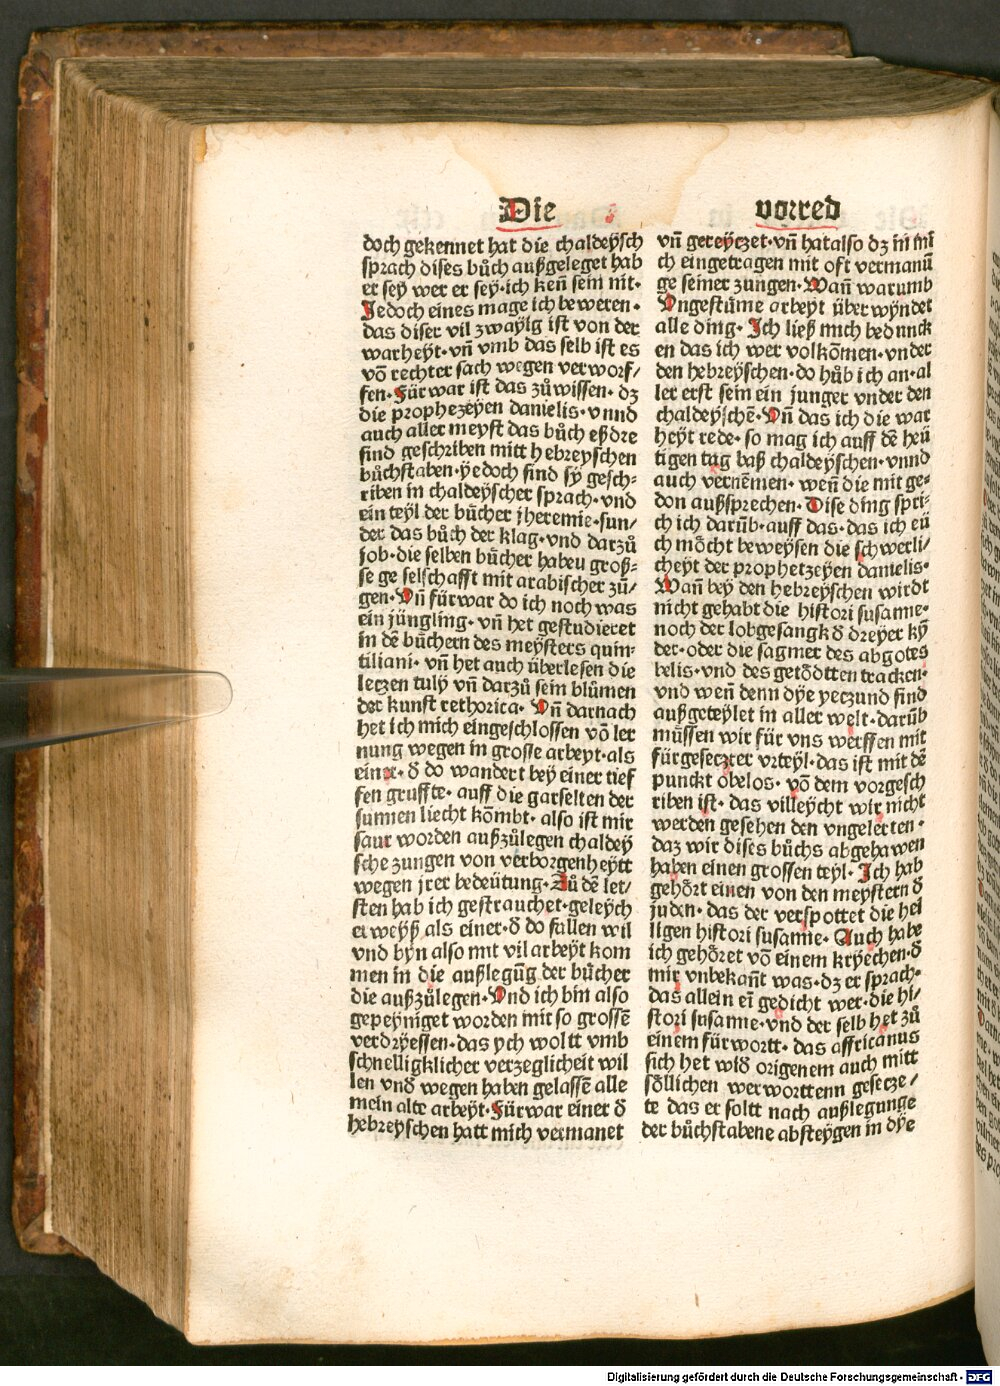 Die vorred
doch gekennet hat die chaldeÿsch
sprach dises bůch außgeleget hab
er seÿ wer er seÿ·ich keñ sein nit·
Jedoch eines mage ich beweren·
das diser vil zwaÿlg ist von der
warheÿt·vñ vmb das selb ist es
võ rechter sach wegen verworf/
fen·Fürwar ist das zůwissen·dz
die prophezeÿen danielis·vnnd
auch aller meyst das bůch eßdre
sind geschriben mitt hebreyschen
bůchstaben·ÿedoch sind sÿ gesch-
riben in chaldeÿscher sprach·vnd
ein teÿl der bücher jheremie·sun/
der das bůch der klag·vnd darzů
job·die selben bücher habeu groß-
se ge selschafft mit arabischer zũ/
gen·Vñ fürwar do ich noch was
ein jüngling·vñ het gestudieret
in dẽ büchern des meÿsters quin-
tiliani·vñ het auch überlesen die
leczen tulÿ vñ darzů sein blůmen
der kunst rethorica·Vñ darnach
het ich mich eingeschlossen võ ler
nung wegen in grosse arbeyt·als
einer·d do wandert beÿ einer tief
fen gruffte·auff die garselten der
sunnen liecht kõmbt·also ist mir
saur worden außzůlegen chaldeÿ
sche zungen von verborgenheÿtt
wegen jrer bedeütung·Zů dẽ let/
sten hab ich gestrauchet·geleÿch
er weÿß als einer·d do fallen wil
vnd bÿn also mit vil arbeÿt kom
men in die außlegũg der bücher
die außzůlegen·Vnd ich bin also
gepeÿniget worden mit so grossẽ
verdrÿessen·das ÿch woltt vmb
schnelligklicher verzeglicheit wil
len vnd wegen haben gelassẽ alle
mein alte arbeÿt·Fürwar einer d
hebreÿschen hatt mich vermanet
vñ gereÿczet·vñ hat also dz in mi
ch eingetragen mit oft vermanũ
ge seiner zungen·Wañ warumb
Vngestüme arbeyt über wÿndet
alle ding·Ich ließ mich bedunck
en das ich wer volkõmen·vnder
den hebreÿschen·do hůb ich an·al
ler erst sein ein junger vnder den
chaldeÿschẽ·Vñ das ich die war
heÿt rede·so mag ich auff dẽ heü
tigen tag baß chaldeÿschen·vnnd
auch vernẽmen·weñ die mit ge-
don außsprechen·Dise ding spri-
ch ich darũb·auff das·das ich eü
ch mőcht beweÿsen die schwerli/
cheÿt der prophetzeÿen danielis·
Wañ beÿ den hebreÿschen wirdt
nicht gehabt die histori susanne·
noch der lobgesangk d dreÿer kÿ
der·oder die sagmer des abgotes
belis·vnd des getődtten tracken·
vnd weñ denn dÿe yeczund sind
außgeteÿlet in aller welt·darũb
müssen wir für vns werffen mit
fürgeseczter vrteÿl·das ist mit dẽ
punckt obelos·võ dem vorgesch
riben ist·das villeÿcht wir nicht
werden gesehen den vngelerten·
daz wir dises bůchs abgehawen
haben einen grossen teÿl·Ich hab
gehőrt einen von den meystern d
juden·das der verspottet die hei
ligen histori susanne·Auch habe
ich gehőret võ einem krÿechen·d
mir vnbekañt was·dz er sprach·
das allein eĩ gedicht wer·die hi/
stori susanne·vnd der selb het zů
einem fürwortt·das affricanus
sich het wid origenem auch mitt
sőllichen werworttenn gesecze/
te das er soltt nach außlegunge
der bůchstabene absteÿgen in dÿe
Digitalisierung gefördert durch die Deutsche Forschungsgemeinschaft - DFG